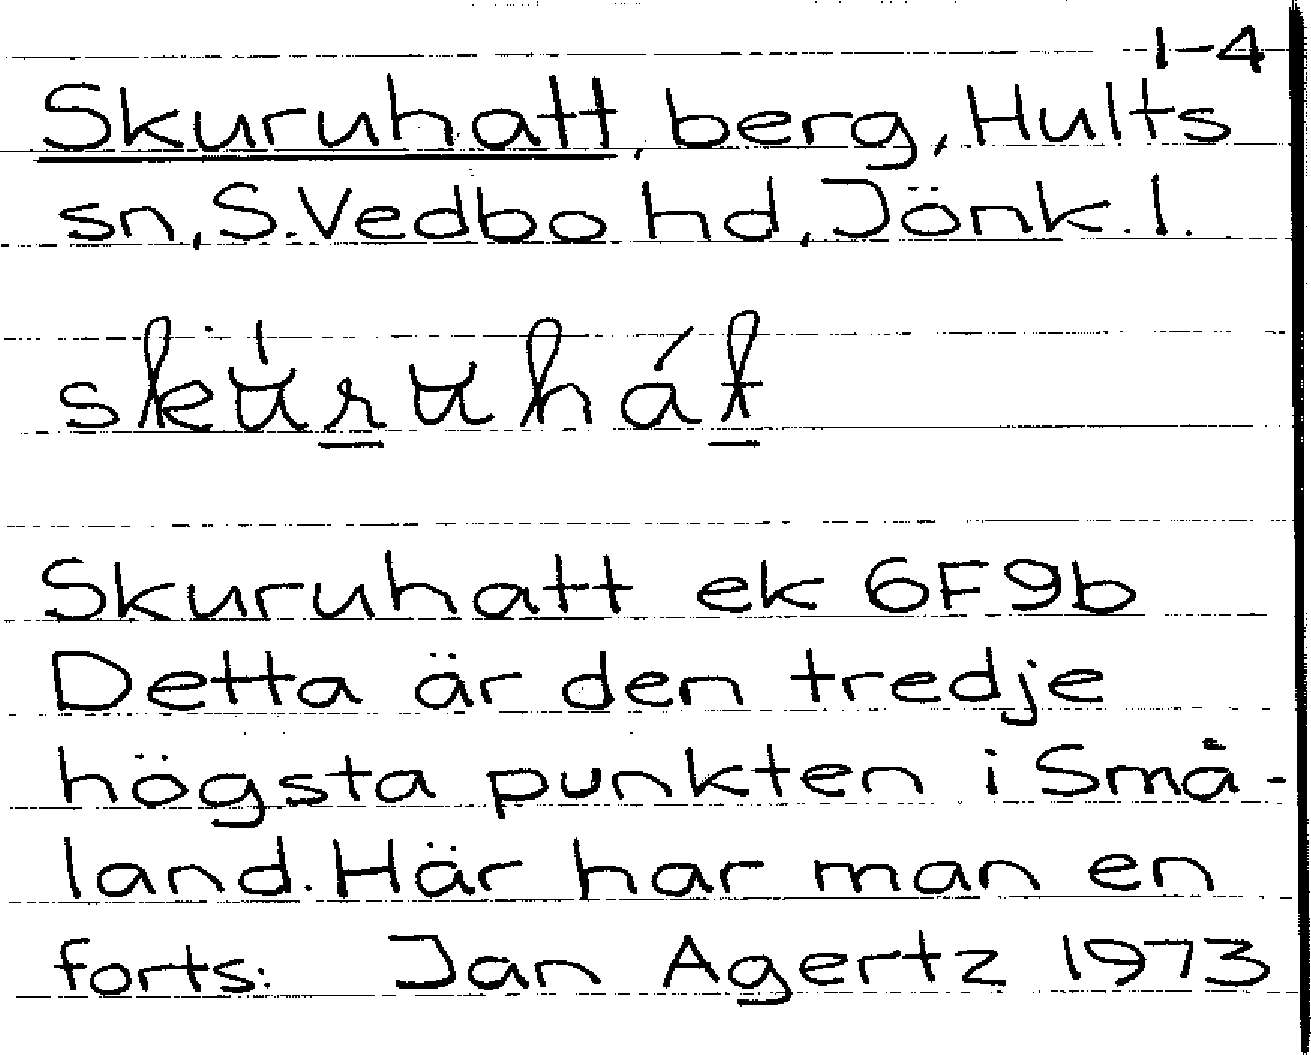 1-4
Skuruhatt, berg, Hults
sn, S. Vedbo hd, Jönk. l.
Skuruhatt ek 6F9b
Detta är den tredje
högsta punkten i Små-
land. Här har man en
forts. Jan Agertz 1973